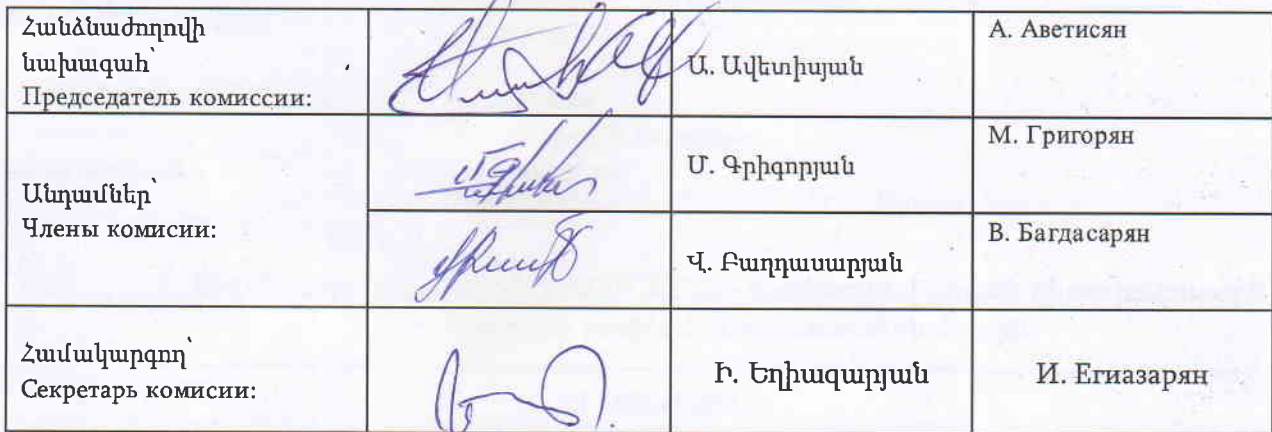 Հանձնաժողովի
նախագահ՝
Председатель комиссии:
Ա. Ավետիսյան
А. Аветисян
Անդամներ՝
Члены комисии:
Մ. Գրիգորյան
М. Григорян
Վ. Բաղդասարյան
В. Багдасарян
Համակարգող՝
Секретарь комисии:
Ի. Եղիազարյան
И. Егиазарян